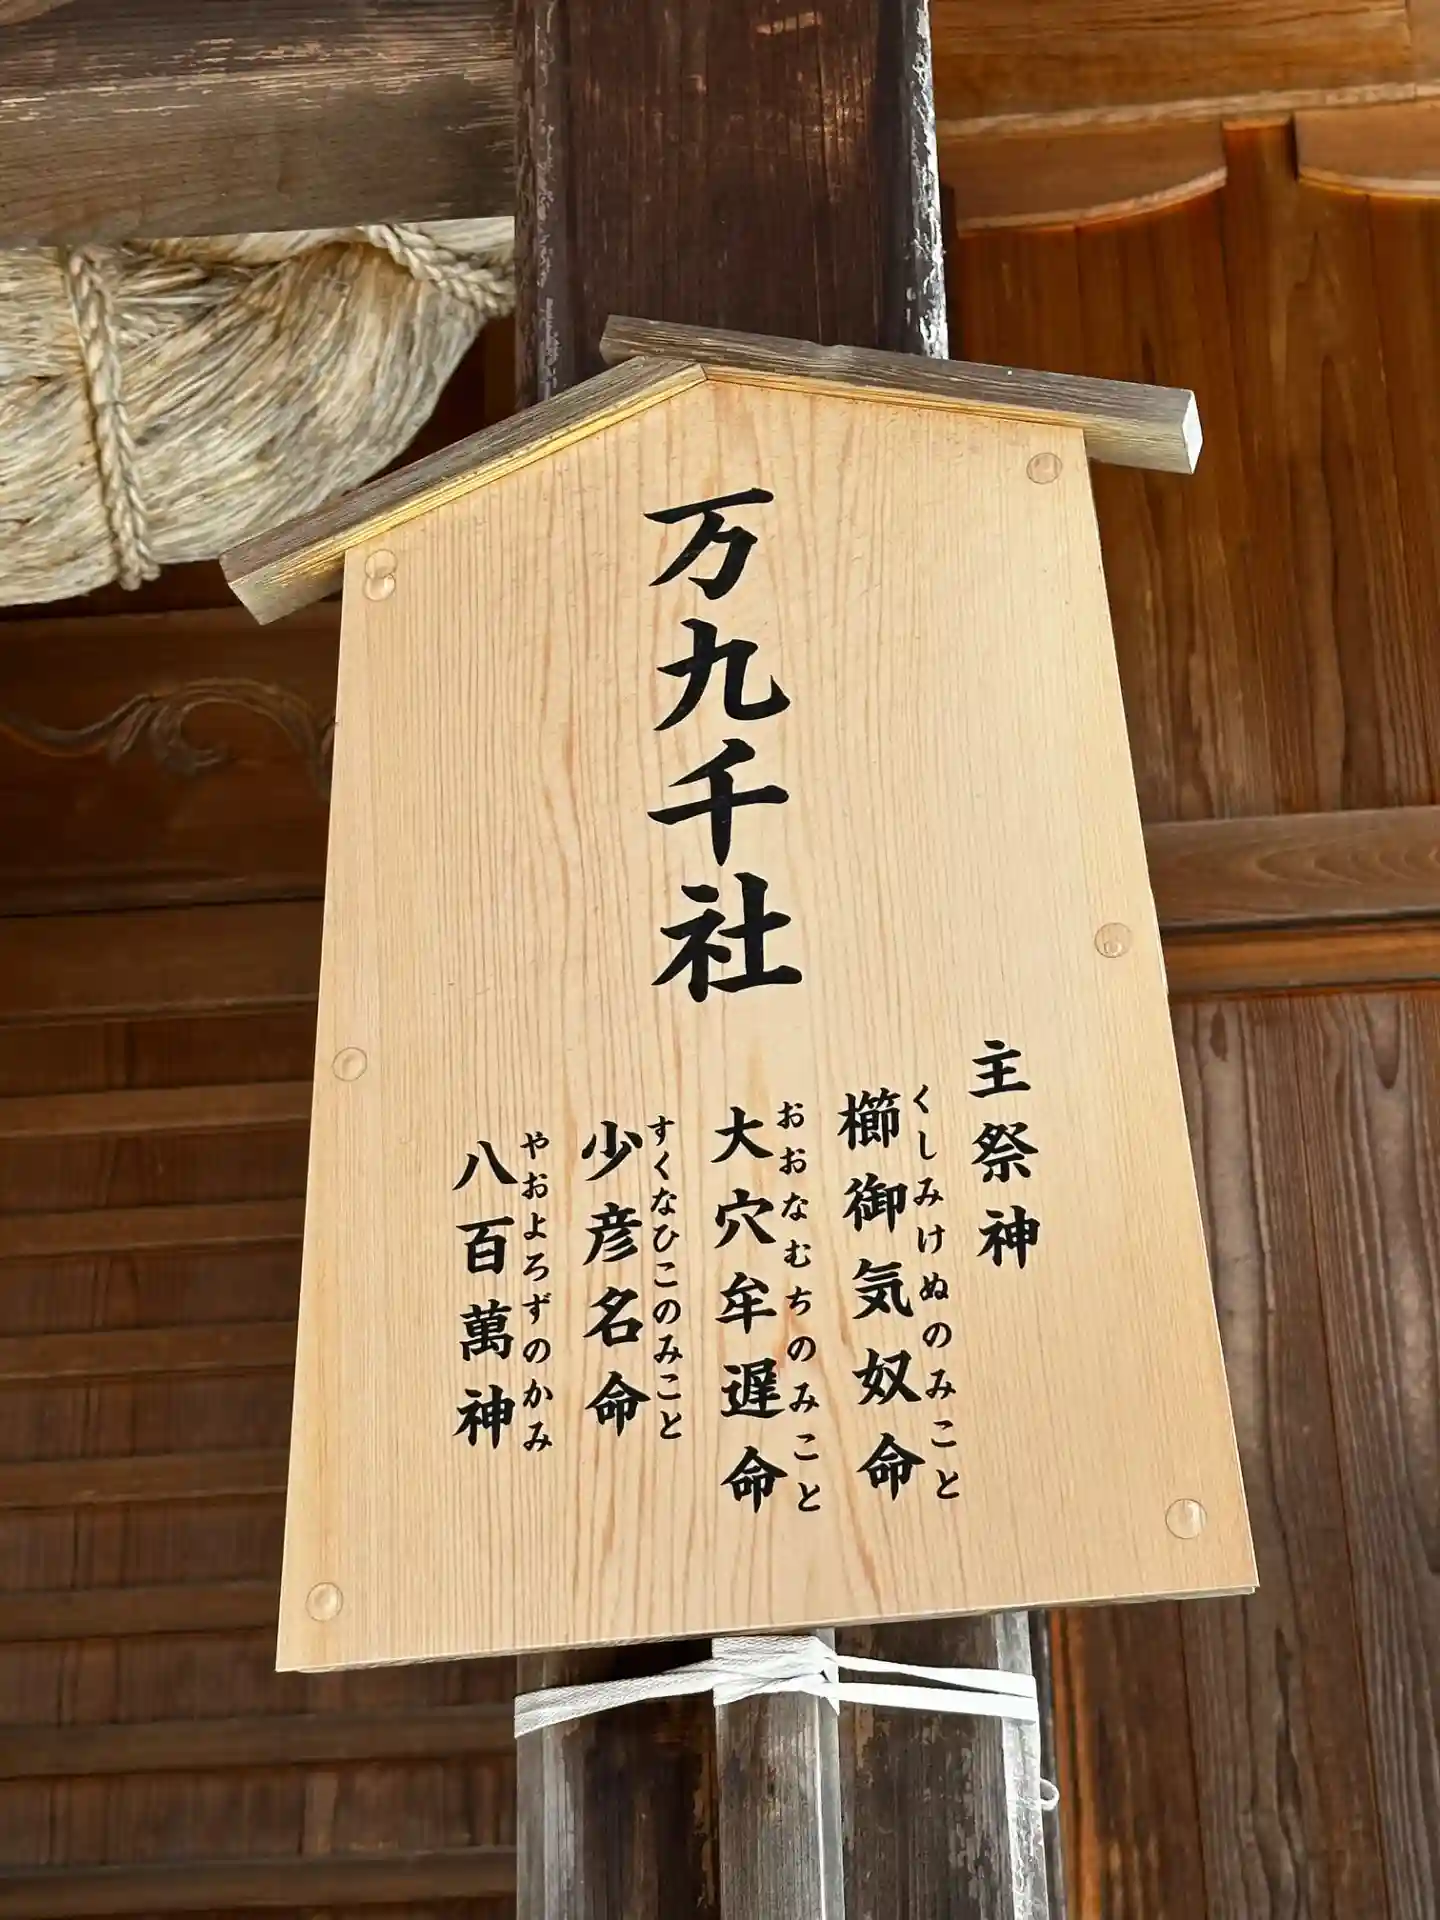 万九千社
主祭神
櫛御気奴命
くしみけぬのみこと
大穴牟遅命
おおなむちのみこと
少彦名命
すくなひこのみこと
八百萬神
やおよろずのかみ